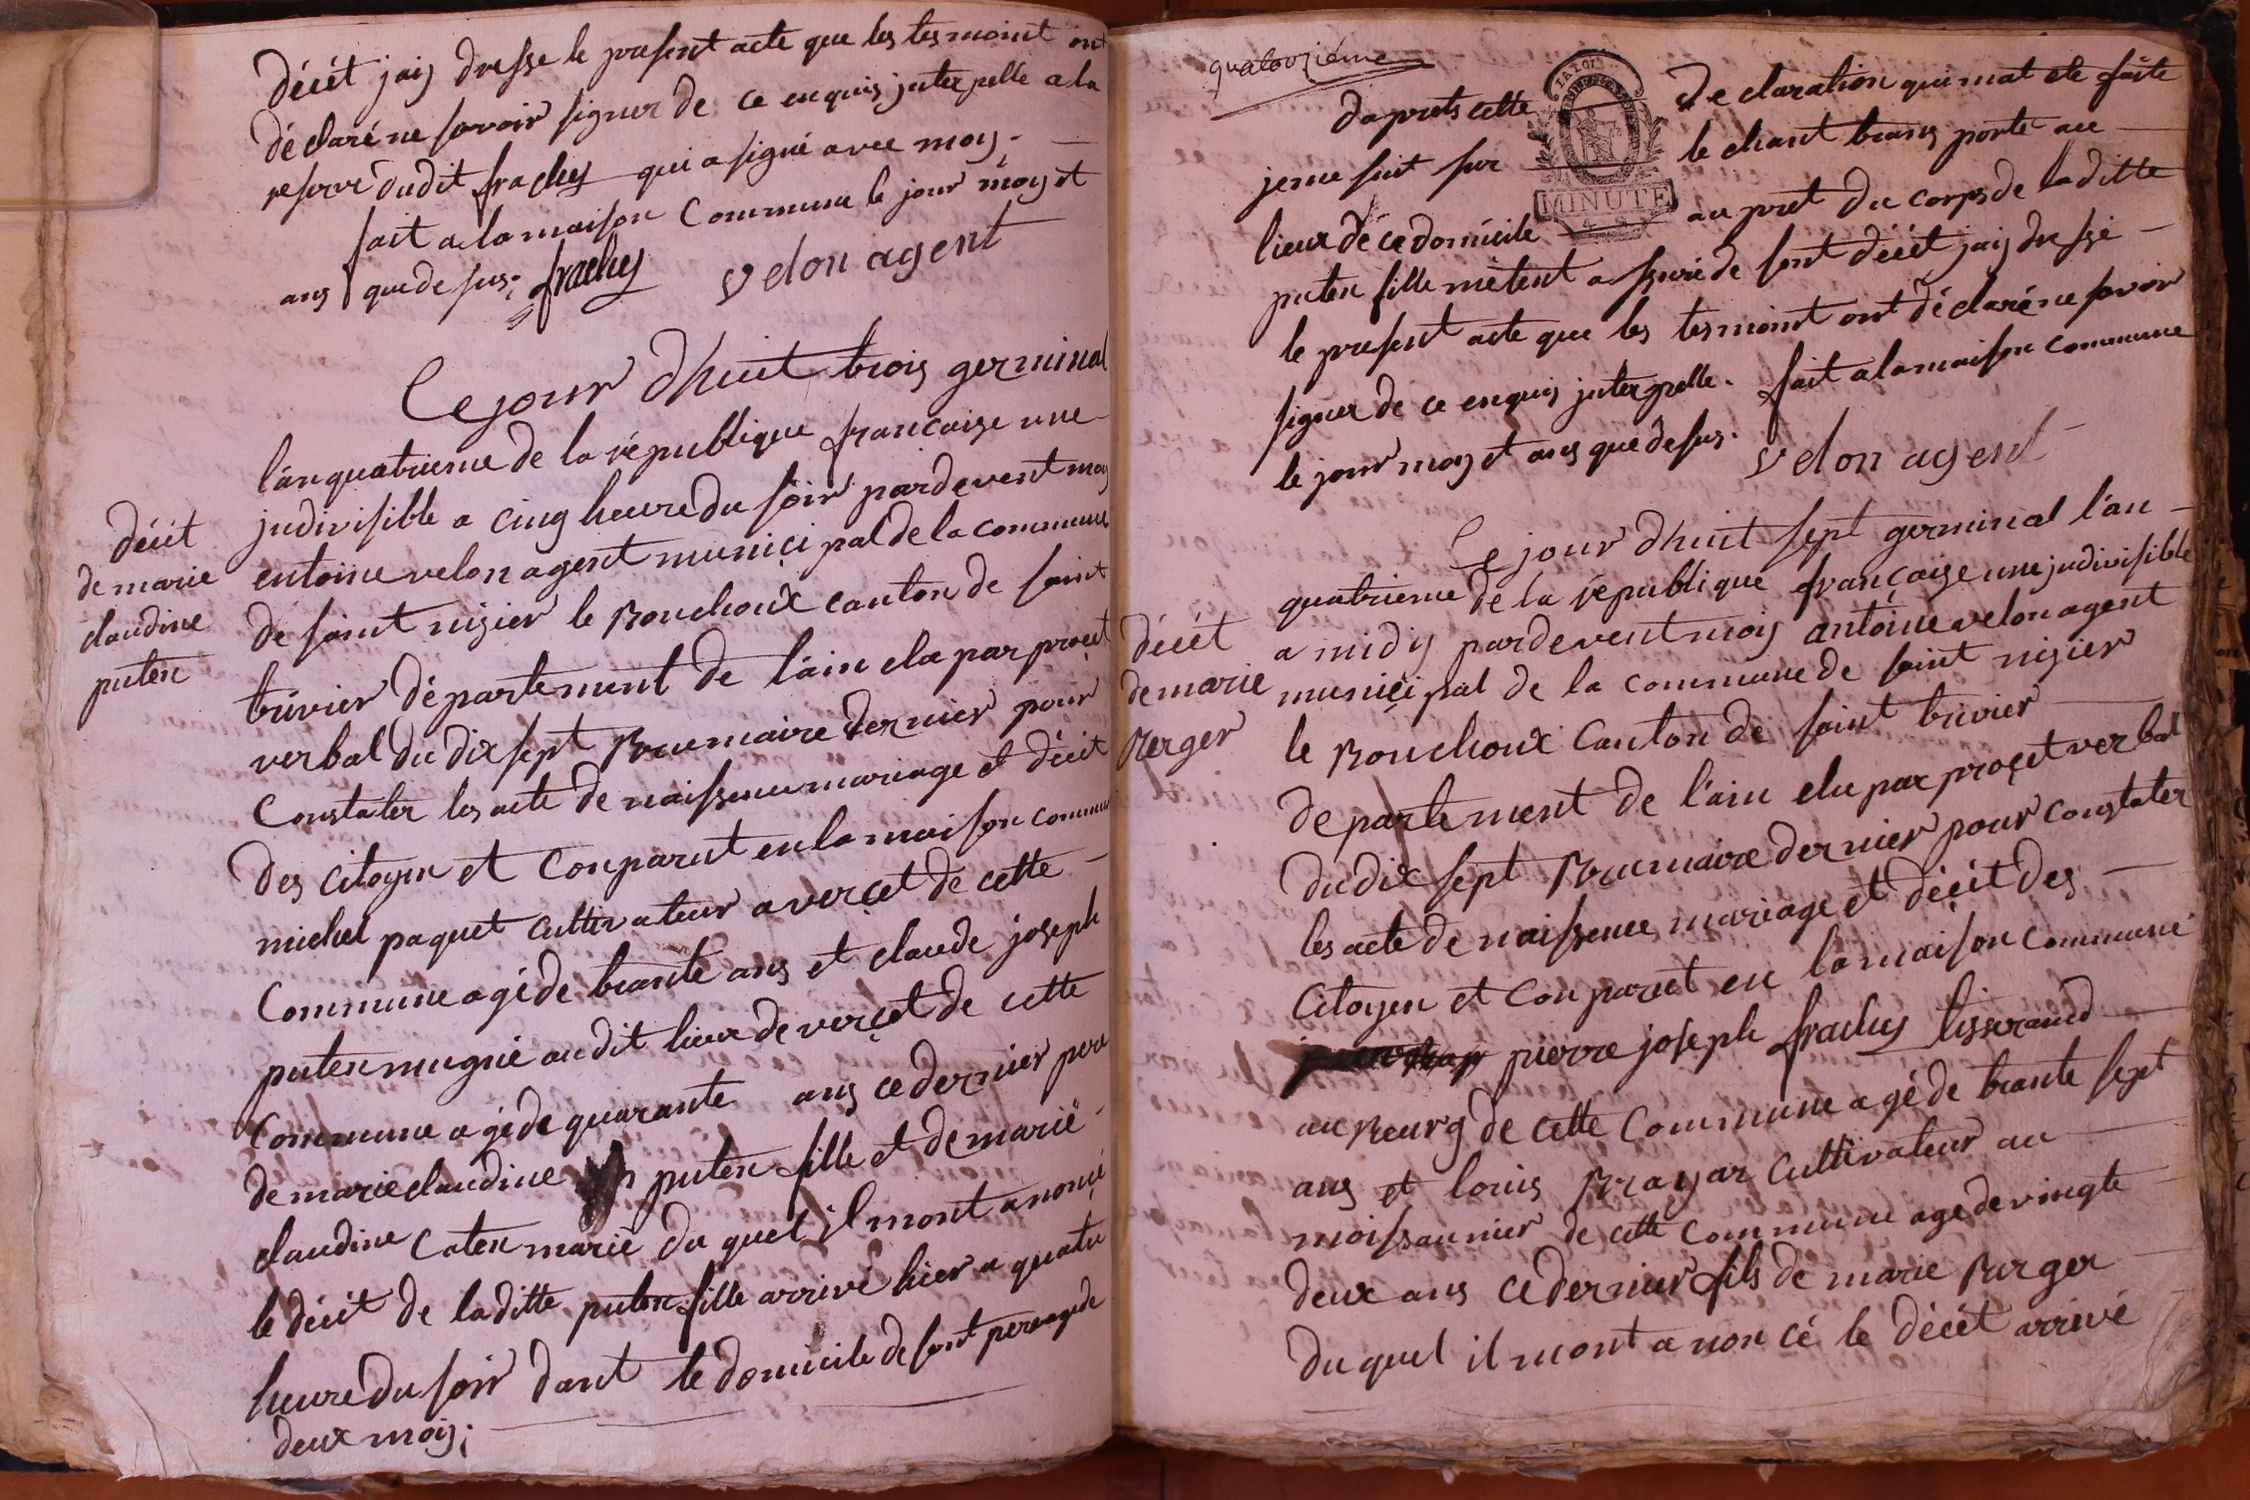 décét jaij dresse le present acte que les tesmoint ont
déclaré ne savoir signer de ce enquis jnterpellé a la
reserve dudit frachey qui a signé avec moy.
fait a la maison Commune le jour moy et
ans que de sus. frachey velon agent
Ce jour dhuit trois germinal
l'an quatrieme de la république francaise une
judivisible a cinq heure du soir pardevent moy
décét
de marie
claudine
puten
entoine velon agent municipal de la commune
de saint nizier le Bouchoux canton de saint
trivier département de l'ain elu par procet
verbal du dix sept Brumaire dernier pour
Constater les acte de naissence mariage et décét
des citoyen et Conparut en la maison commune
michel paquet cultivateur a verçet de cette
Commune agé de trante ans et claude joseph
puten mugnié audit lieux de verçet de cette
Commune agé de quarante ans ce dernier pere
de marie claudine puten fille et de marie
claudine Caten marié du quel il mont anoncé
le décét de laditte puten fille arrivé hier a quatre
heure du soir dant le domicile de sont pere agé de
deux mois;
quatorzième
LA LOI
MINUTE
daprets cette declaration qui mat ete faite
je me suit sur le chant trans porté au
lieux de ce domicile au pret du corps de laditte
puten fille métent assuré de sont décét jaij dressé
le present acte que les tesmoint ont déclaré ne savoir
signer de ce enquis jnterpelle. fait a la maison commune
le jour moy et ans que de sus. velon agent
Ce jour dhuit sept germinal l'an
quatrieme de la république française une judivisible
décét
de marie
Berger
a midy pardevent moy antoine velon agent
municipal de la commune de saint nizier
le Bouchoux Canton de saint trivier
departement de l'ain elu par proçet verbal
du dix sept Brumaire dernier pour Constater
les acte de naissence mariage et décét des
Citoyen et Conparut en la maison commune
pierre joseph frachey tisserand
au Bourg de cette Commune agé de trante sept
ans et louis Brayar cultivateur au
moissaunier de cette commune age de vingte
deux ans ce dernier fils de marie Burger
du quel il mont a non cé le décét arrivé